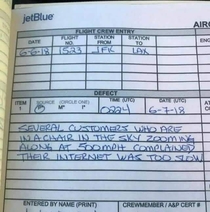 jetBlue
AIRC
FLIGHT CREW ENTRY
DATE FLIGHT NO. STATION FROM STATION TO
6-6-18 1523 JFK LAX
DEFECT
ITEM SOURCE (CIRCLE ONE) TIME (UTC) DATE (UTC)
1 M* 0224 6-7-18
SEVERAL CUSTOMERS WHO ARE
IN A CHAIR IN THE SKY ZOOMING
ALONG AT 500MPH COMPLAINED
THEIR INTERNET WAS TOO SLOW
ENTERED BY NAME (PRINT) CREWMEMBER / A&P CERT #